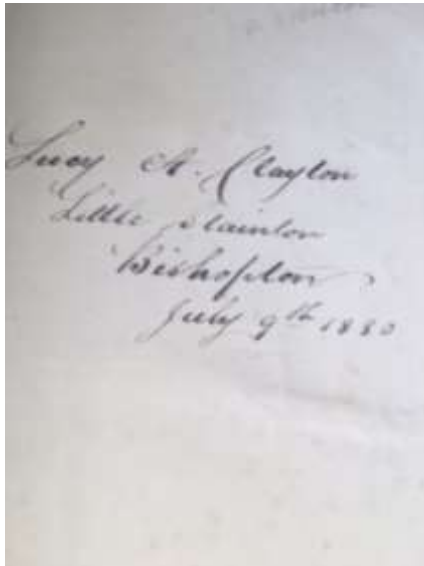 Lucy A. Clayton
Little Stainton
Bishopton
July 9th 1880